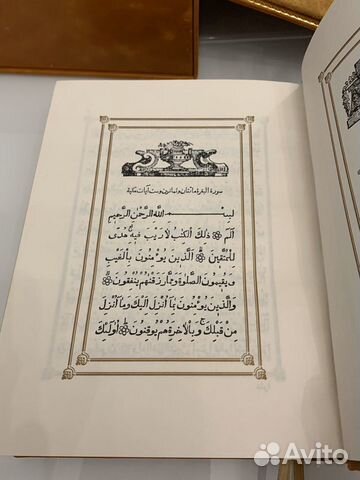 سورة البقرة مائتان وثمانون وست آيات مكية
بِسْــــمِ اللّٰهِ الرَّحْمٰنِ الرَّحِيمِ
الٓمٓ ۝ ذٰلِكَ الْكِتٰبُ لَا رَيْبَ فِيهِ ۛ هُدًى
لِلْمُتَّقِينَ ۝ الَّذِينَ يُؤْمِنُونَ بِالْغَيْبِ
وَيُقِيمُونَ الصَّلٰوةَ وَمِمَّا رَزَقْنٰهُمْ يُنْفِقُونَ ۝
وَالَّذِينَ يُؤْمِنُونَ بِمَا اُنْزِلَ اِلَيْكَ وَمَا اُنْزِلَ
مِنْ قَبْلِكَ ۚ وَبِالْاٰخِرَةِ هُمْ يُوقِنُونَ ۝ اُولٰئِكَ
Avito